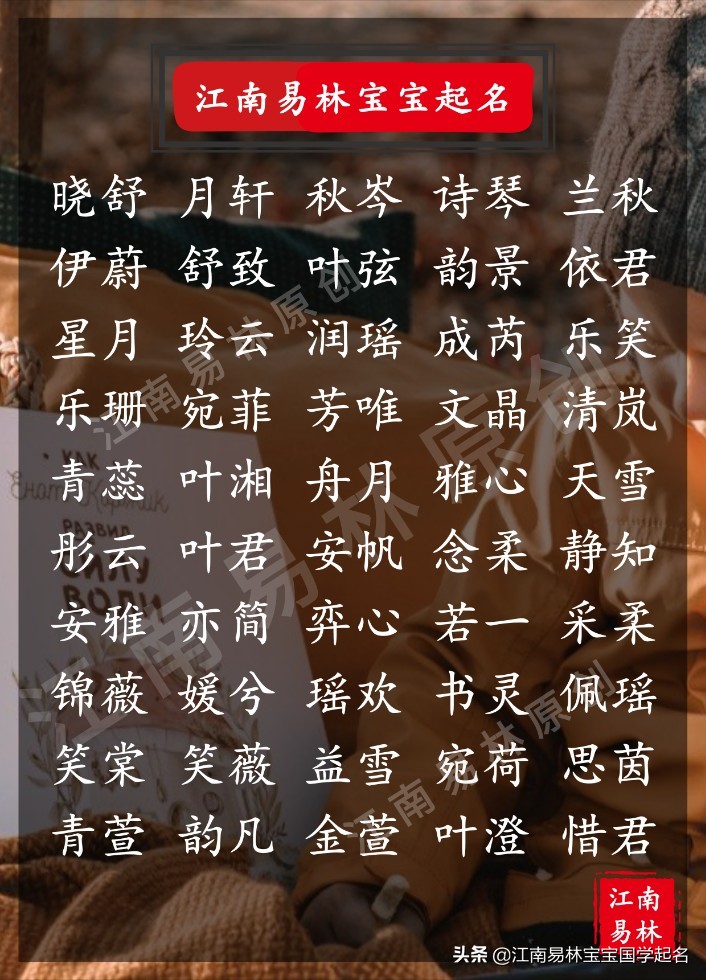 江南易林宝宝起名
晓舒 月轩 秋岑 诗琴 兰秋
伊蔚 舒致 叶弦 韵景 依君
星月 玲云 润瑶 成芮 乐笑
乐珊 宛菲 芳唯 文晶 清岚
青蕊 叶湘 舟月 雅心 天雪
彤云 叶君 安帆 念柔 静知
安雅 亦简 弈心 若一 采柔
锦薇 媛兮 瑶欢 书灵 佩瑶
笑棠 笑薇 益雪 宛荷 思茵
青萱 韵凡 金萱 叶澄 惜君
江南易林原创
江南易林原创
江南易林原创
КАК
Енот
РАЗВИЛ
СИЛУ
ВОЛИ
江南
易林
头条 @江南易林宝宝国学起名